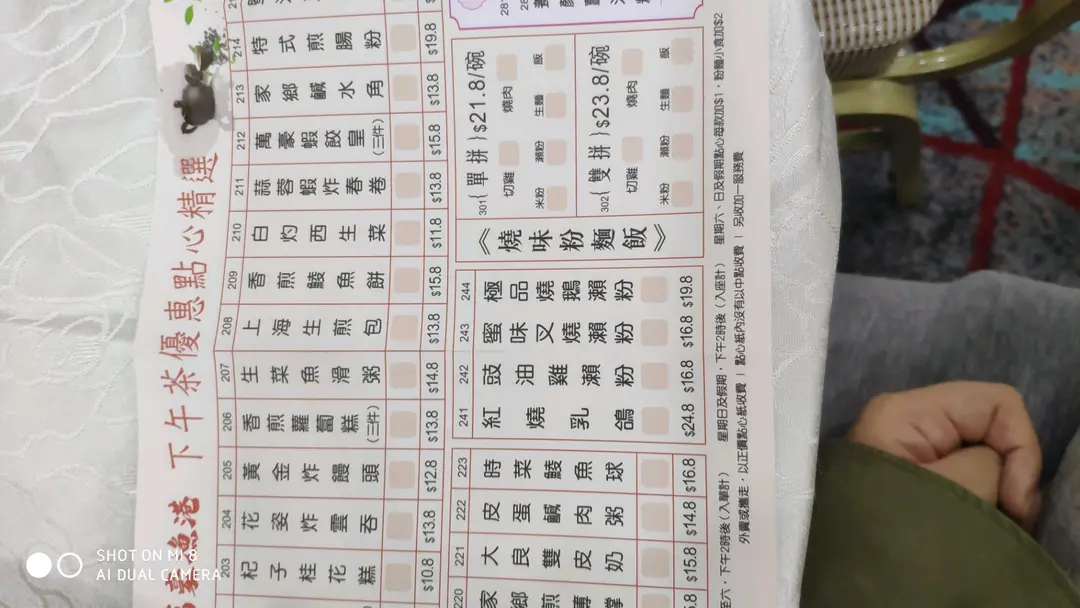 漁港 下午茶優惠點心精選
203 杞子桂花糕 $10.8
204 花姿炸雲吞 $13.8
205 黃金炸饅頭 $12.8
206 香煎蘿蔔糕(三件) $13.8
207 生菜魚滑粥 $14.8
208 上海生煎包 $13.8
209 香煎鯪魚餅 $15.8
210 白灼西生菜 $11.8
211 蒜蓉蝦炸春卷 $13.8
212 萬豪蝦餃皇(三件) $15.8
213 家鄉鹹水角 $13.8
214 特式煎腸粉 $19.8
220
221 大良雙皮奶 $15.8
222 皮蛋鹹肉粥 $14.8
223 時菜鯪魚球 $16.8
241 紅燒乳鴿 $24.8
242 豉油雞瀨粉 $16.8
243 蜜味叉燒瀨粉 $16.8
244 極品燒鵝瀨粉 $19.8
《燒味粉麵飯》
301{單拼}$21.8/碗
切雞 燒肉
米粉 瀨粉 生麵 飯
302{雙拼}$23.8/碗
切雞 燒肉
米粉 瀨粉 生麵 飯
至六，下午2時後（入單計） 星期日及假期，下午2時後（入座計） 星期六、日及假期點心每款加$1，粉麵小食加$2
外賣或攜走，以正價點心紙收費 | 點心紙內沒有以中點收費 | 另收加一服務費
SHOT ON MI 8
AI DUAL CAMERA